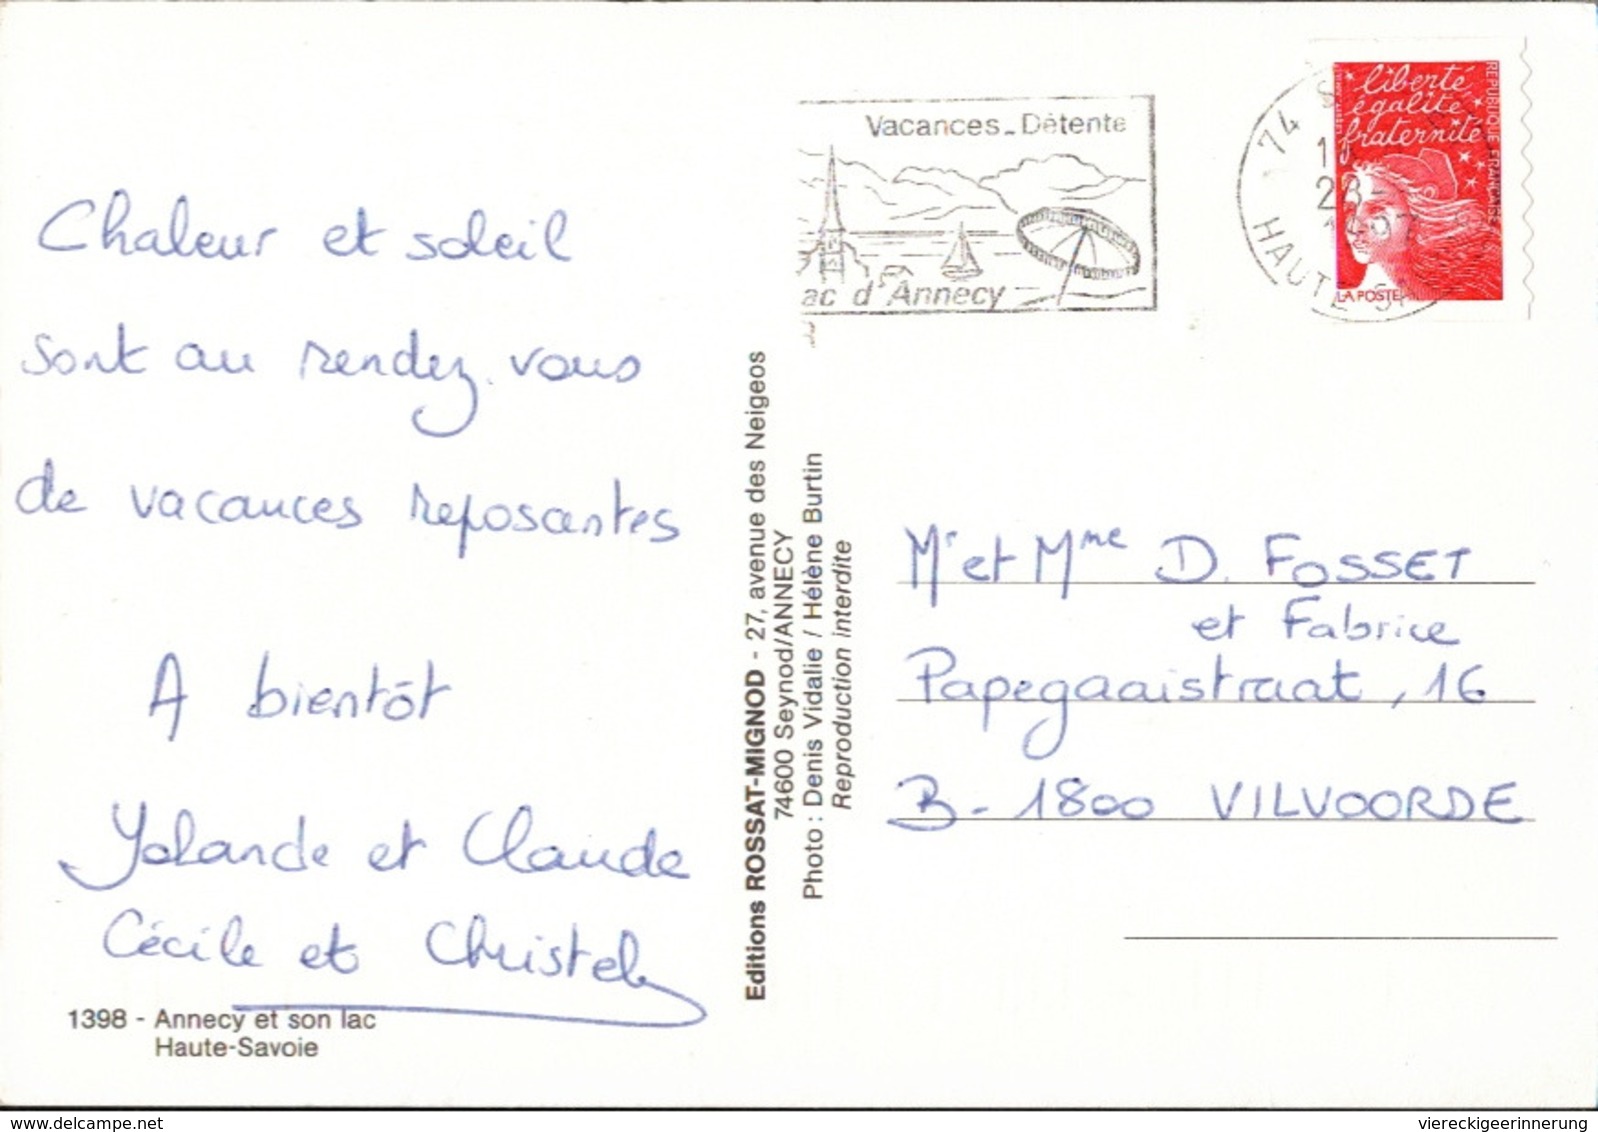 Chaleur et soleil
sont au rendez-vous
de vacances reposantes
A bientôt
Yolande et Claude
Cécile et Christel
1398 - Annecy et son lac
Haute-Savoie
Editions ROSSAT-MIGNOD - 27, avenue des Neigeos
74600 Seynod/ANNECY
Photo : Denis Vidalie / Hélène Burtin
Reproduction interdite
Vacances-Détente
ac d'Annecy
74
HAUTE
liberté
égalité
fraternité
REPUBLIQUE FRANÇAISE
LA POSTE
Mr et Mme D. FOSSET
et Fabrice
Papegaaistraat, 16
B-1800 VILVOORDE
delcampe.net
viereckigeerinnerung